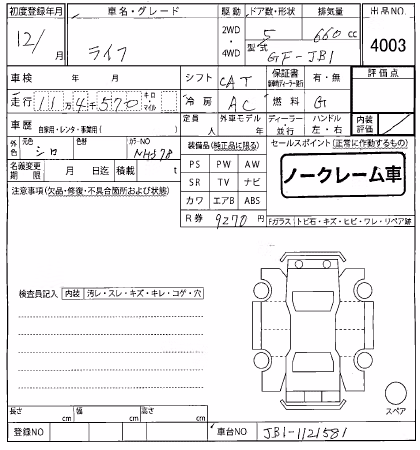 初度登録年月 車名・グレード 駆動 ドア数・形状 排気量 出品NO.
12/ 月 ライフ 2WD ・ 4WD 5 660 cc 4003
型式 GF-JB1
車検 年 月 シフト CAT 保証書 有・無 評価点
走行 11万4千570 キロ マイル 冷房 AC 燃料 G
車歴 自家用・レンタ・事業用( ) 定員 人 外車モデル 年 ディーラー ・ 並行 ハンドル 左・右 内装評価
外色 元色 シロ 色替 カラーNO NH578 装備品(純正品に限る) セールスポイント(正常に作動するもの)
名義変更期限 月 日迄 積載 t PS PW AW ノークレーム車
注意事項(欠品・修復・不具合箇所および状態) SR TV ナビ
カワ エアB ABS
R券 9270円 Fガラス トビ石・キズ・ヒビ・ワレ・リペア跡
検査員記入 内装 汚レ・スレ・キズ・キレ・コゲ・穴
スペア
長さ cm 幅 cm 高さ cm
登録NO 車台NO JB1-1121581